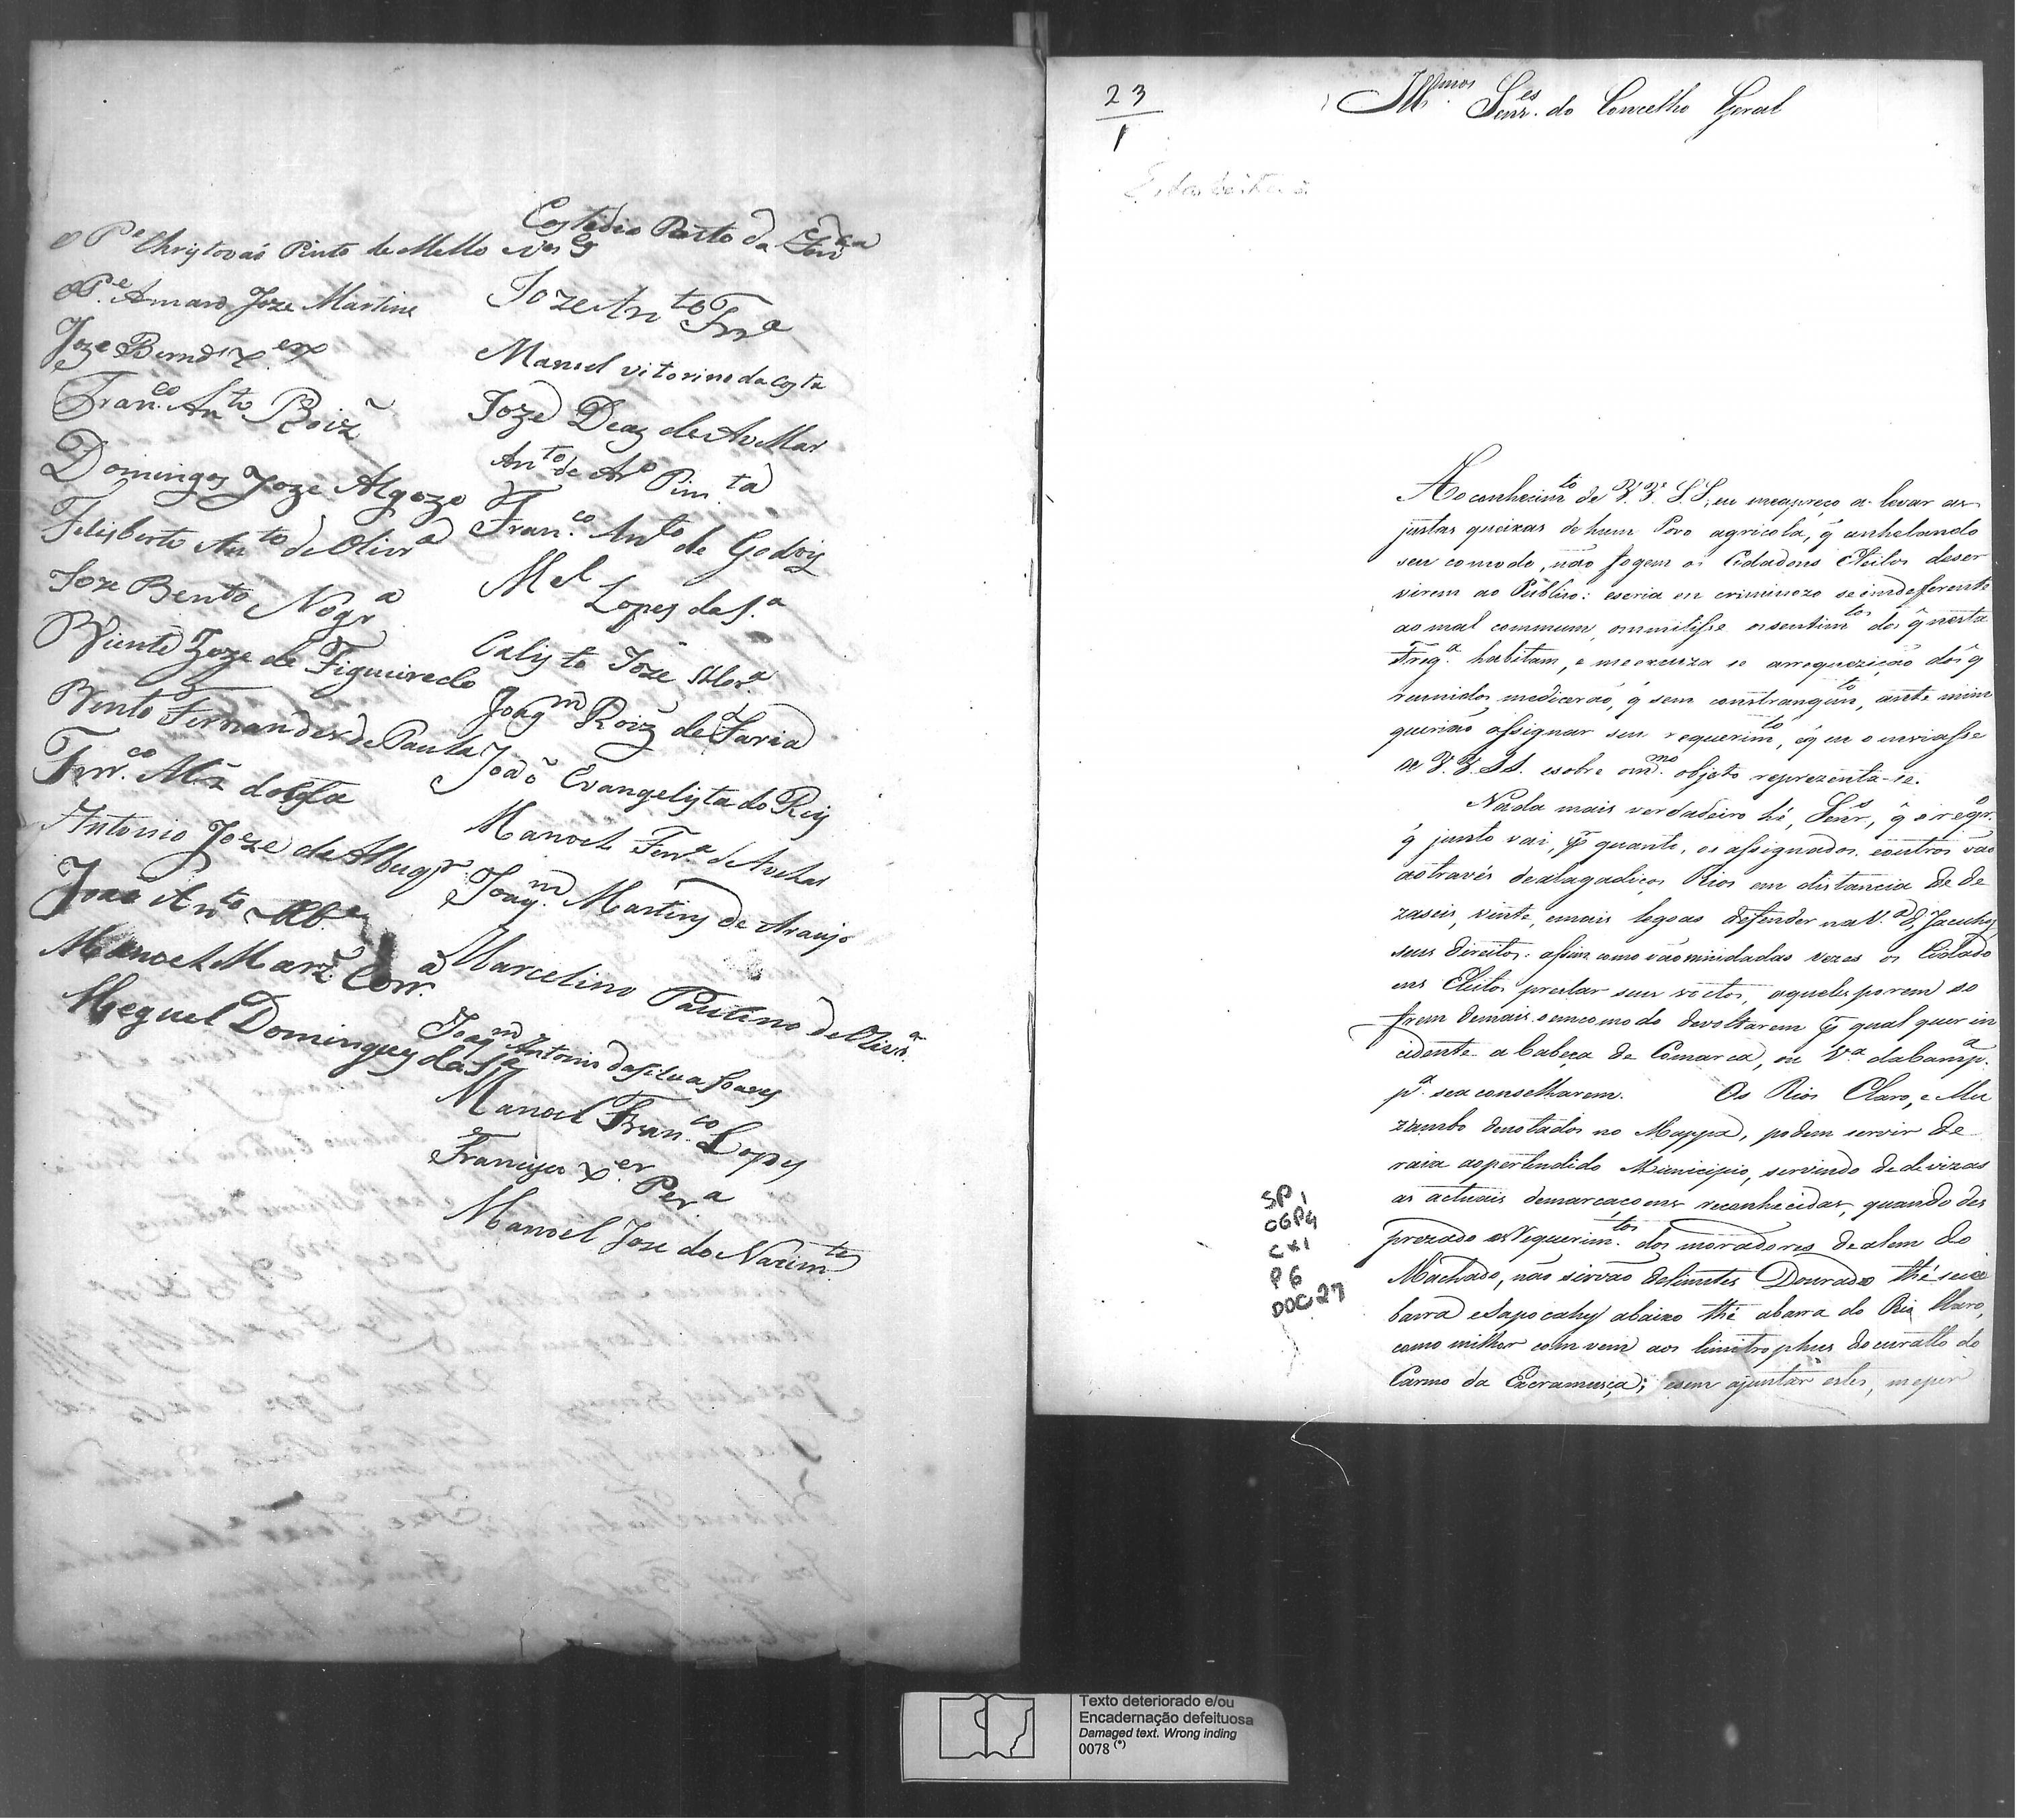 O Pe Christovaõ Pinto de Mello
O Pe Amaro Joze Martins
Joze Bernd. Xer
Franco. Anto Roiz
Domingos Joze Algozo
Felisberto Anto de Olivra
Joze Bento Nogra
Vicente Joze de Figueiredo
Bento Fernandes de Paula
Franco. Miz da Costa
Antonio Joze de Albuqr.
Joze Anto
Manoel Marz Corra.
Meguel Domingues da Sa
Costodio Pinto da
Joze Anto Frra
Manoel vitorino da costa
Joze Deaz de AvMar
Anto de Aro Pimta
Franco. Anto de Godoy
Mel Lopes da S.a
Calisto Joze Mora.
Joaqm Roiz de Faria
Joaõ Evangelista do Reis
Manoel Ferra de
Joaqm. Martins de Araujo
Marcelino Paulino de Olivra.
Joaqm Antonio da Silva Soares
Manoel Franco. Lopes
Francisco Xer. Pera
Manoel Joze do Nacimto.
23
1
Illmos. Senres. do Concelho Geral
Ao conhecimto de V.V. S.S. eu me apreço a levar as
justas queixas de hum Povo agricola, q̃ anhelando
seu comodo, não fogem os Cidadons Eleitos de ser
virem ao Publico: e seria eu criminozo se indeferente
ao mal commum, ommitisse os sentimtos dos q̃ nesta
Frega. habitam, e me excuza se a requizição dos q̃
reunidos me dicerão, q̃ sem constrangimto, ante mim
querião assignar seu requerimto, e q̃ eu o inviasse
a V.V. S.S. e sobre o mmo. objeto reprezenta-se.
Nada mais verdadeiro hé, Senres, q̃ o reqro.
q̃ junto vai, pr quanto, os assignados e outros vão
ao través de alagadiços Rios em distancia de de
zaseis, vinte, e mais legoas defender na Va. de Jacuhy
seus direitos: assim como vão miudadas vezes os Cidado
ens Eleitos prestar seus votos, aqueles porem so
frem demais o emcomodo de voltarem pr qual quer in
cidente a Cabeça de Comarca, ou Va da Campa.
pa. se aconselharem. Os Rios Claro, e Mu
zambo denotados no Mappa, podem servir de
raia ao pertendido Municipio, servindo de devizas
as actuais demarcaçoens reconhecidas, quando des
prezado o Requerimtos. dos moradores de alem do
Machado, não sirvão de limites Dourado thé sua
barra e Sapocahy abaixo thé a barra do Rio Claro,
como milhor com vem aos limitrophes do curatto do
Carmo da Escramuça; e sem ajuntar estes, me per
SP 1
CGP4
CX1
P6
DOC 27
Texto deteriorado e/ou
Encadernação defeituosa
Damaged text. Wrong inding
0078 (*)